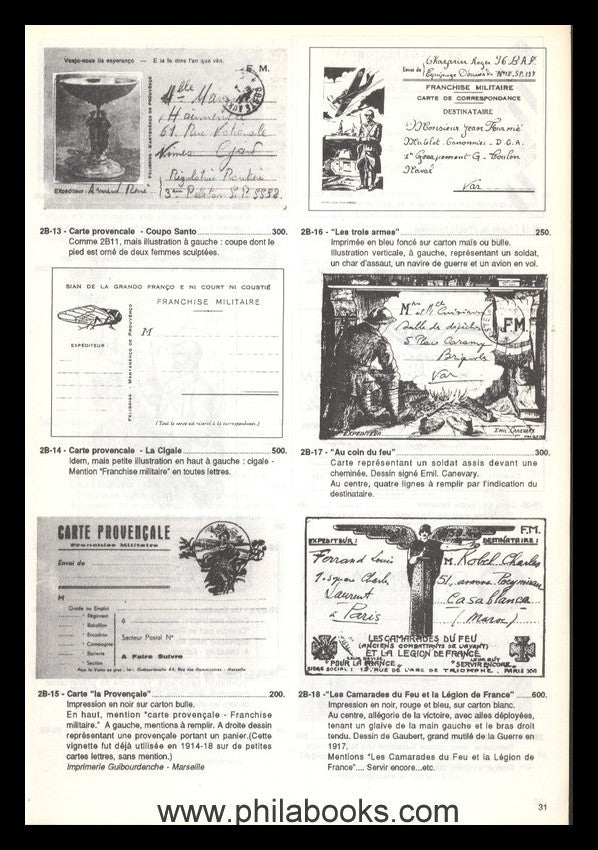 Vuejo-nous lis esperanço — E la fe dins l'an que vèn.
F. M.
61, Rue Nationale
Nîmes Gard
Expéditeur :
2B-13 - Carte provencale - Coupo Santo 300.
Comme 2B11, mais illustration à gauche : coupe dont le
pied est orné de deux femmes sculptées.
SIAN DE LA GRANDO FRANÇO E NI COURT NI COUSTIÉ
FRANCHISE MILITAIRE
M
EXPÉDITEUR :
FELIBRIGE - MANTENÈNÇO DE PROUVÈNÇO
(Tout le verso est réservé à la correspondance.)
2B-14 - Carte provencale - La Cigale 500.
Idem, mais petite illustration en haut à gauche : cigale -
Mention "Franchise militaire" en toutes lettres.
CARTE PROVENÇALE
Franchise Militaire
Envoi de
M
Grade ou Emploi
Régiment
Bataillon
Escadron
Compagnie
Batterie
Section
à
Secteur Postal N°
A Faire Suivre
2B-15 - Carte "la Provençale" 200.
Impression en noir sur carton bulle.
En haut, mention "carte provençale - Franchise
militaire." A gauche, mentions à remplir. A droite dessin
représentant une provençale portant un panier.(Cette
vignette fut déjà utilisée en 1914-18 sur de petites
cartes lettres, sans mention.)
Imprimerie Guibourdenche - Marseille
Envoi de
FRANCHISE MILITAIRE
CARTE DE CORRESPONDANCE
DESTINATAIRE
Monsieur Jean Fournié
Matelot Canonnier - D.C.A.
1er Groupement G - Toulon
Naval
Var
2B-16 - "Les trois armes" 250.
Imprimée en bleu foncé sur carton maïs ou bulle.
Illustration verticale, à gauche, représentant un soldat,
un char d'assaut, un navire de guerre et un avion en vol.
FM
Salle de dépêches
Brignoles
Var
EXPEDITEUR
EMIL CANEVARY
2B-17 - "Au coin du feu" 300.
Carte représentant un soldat assis devant une
cheminée. Dessin signé Emil. Canevary.
Au centre, quatre lignes à remplir par l'indication du
destinataire.
F.M.
EXPEDITEUR :
DESTINATAIRE :
Ferrand Louis
M. Kobel Charles
Laurent
à Paris
Casablanca
(Maroc)
LES CAMARADES DU FEU
(ANCIENS COMBATTANTS DE L'AVANT)
ET LA LEGION DE FRANCE
"POUR LA FRANCE"
"SERVIR ENCORE"
SIEGE SOCIAL : 12, RUE DE L'ARC DE TRIOMPHE. PARIS XVII
2B-18 -"Les Camarades du Feu et la Légion de France" 600.
Impression en noir, rouge et bleu, sur carton blanc.
Au centre, allégorie de la victoire, avec ailes déployées,
tenant un glaive de la main gauche et le bras droit
tendu. Dessin de Gaubert, grand mutilé de la Guerre en
1917.
Mentions "Les Camarades du Feu et la Légion de
France".... Servir encore...etc.
31
www.philabooks.com